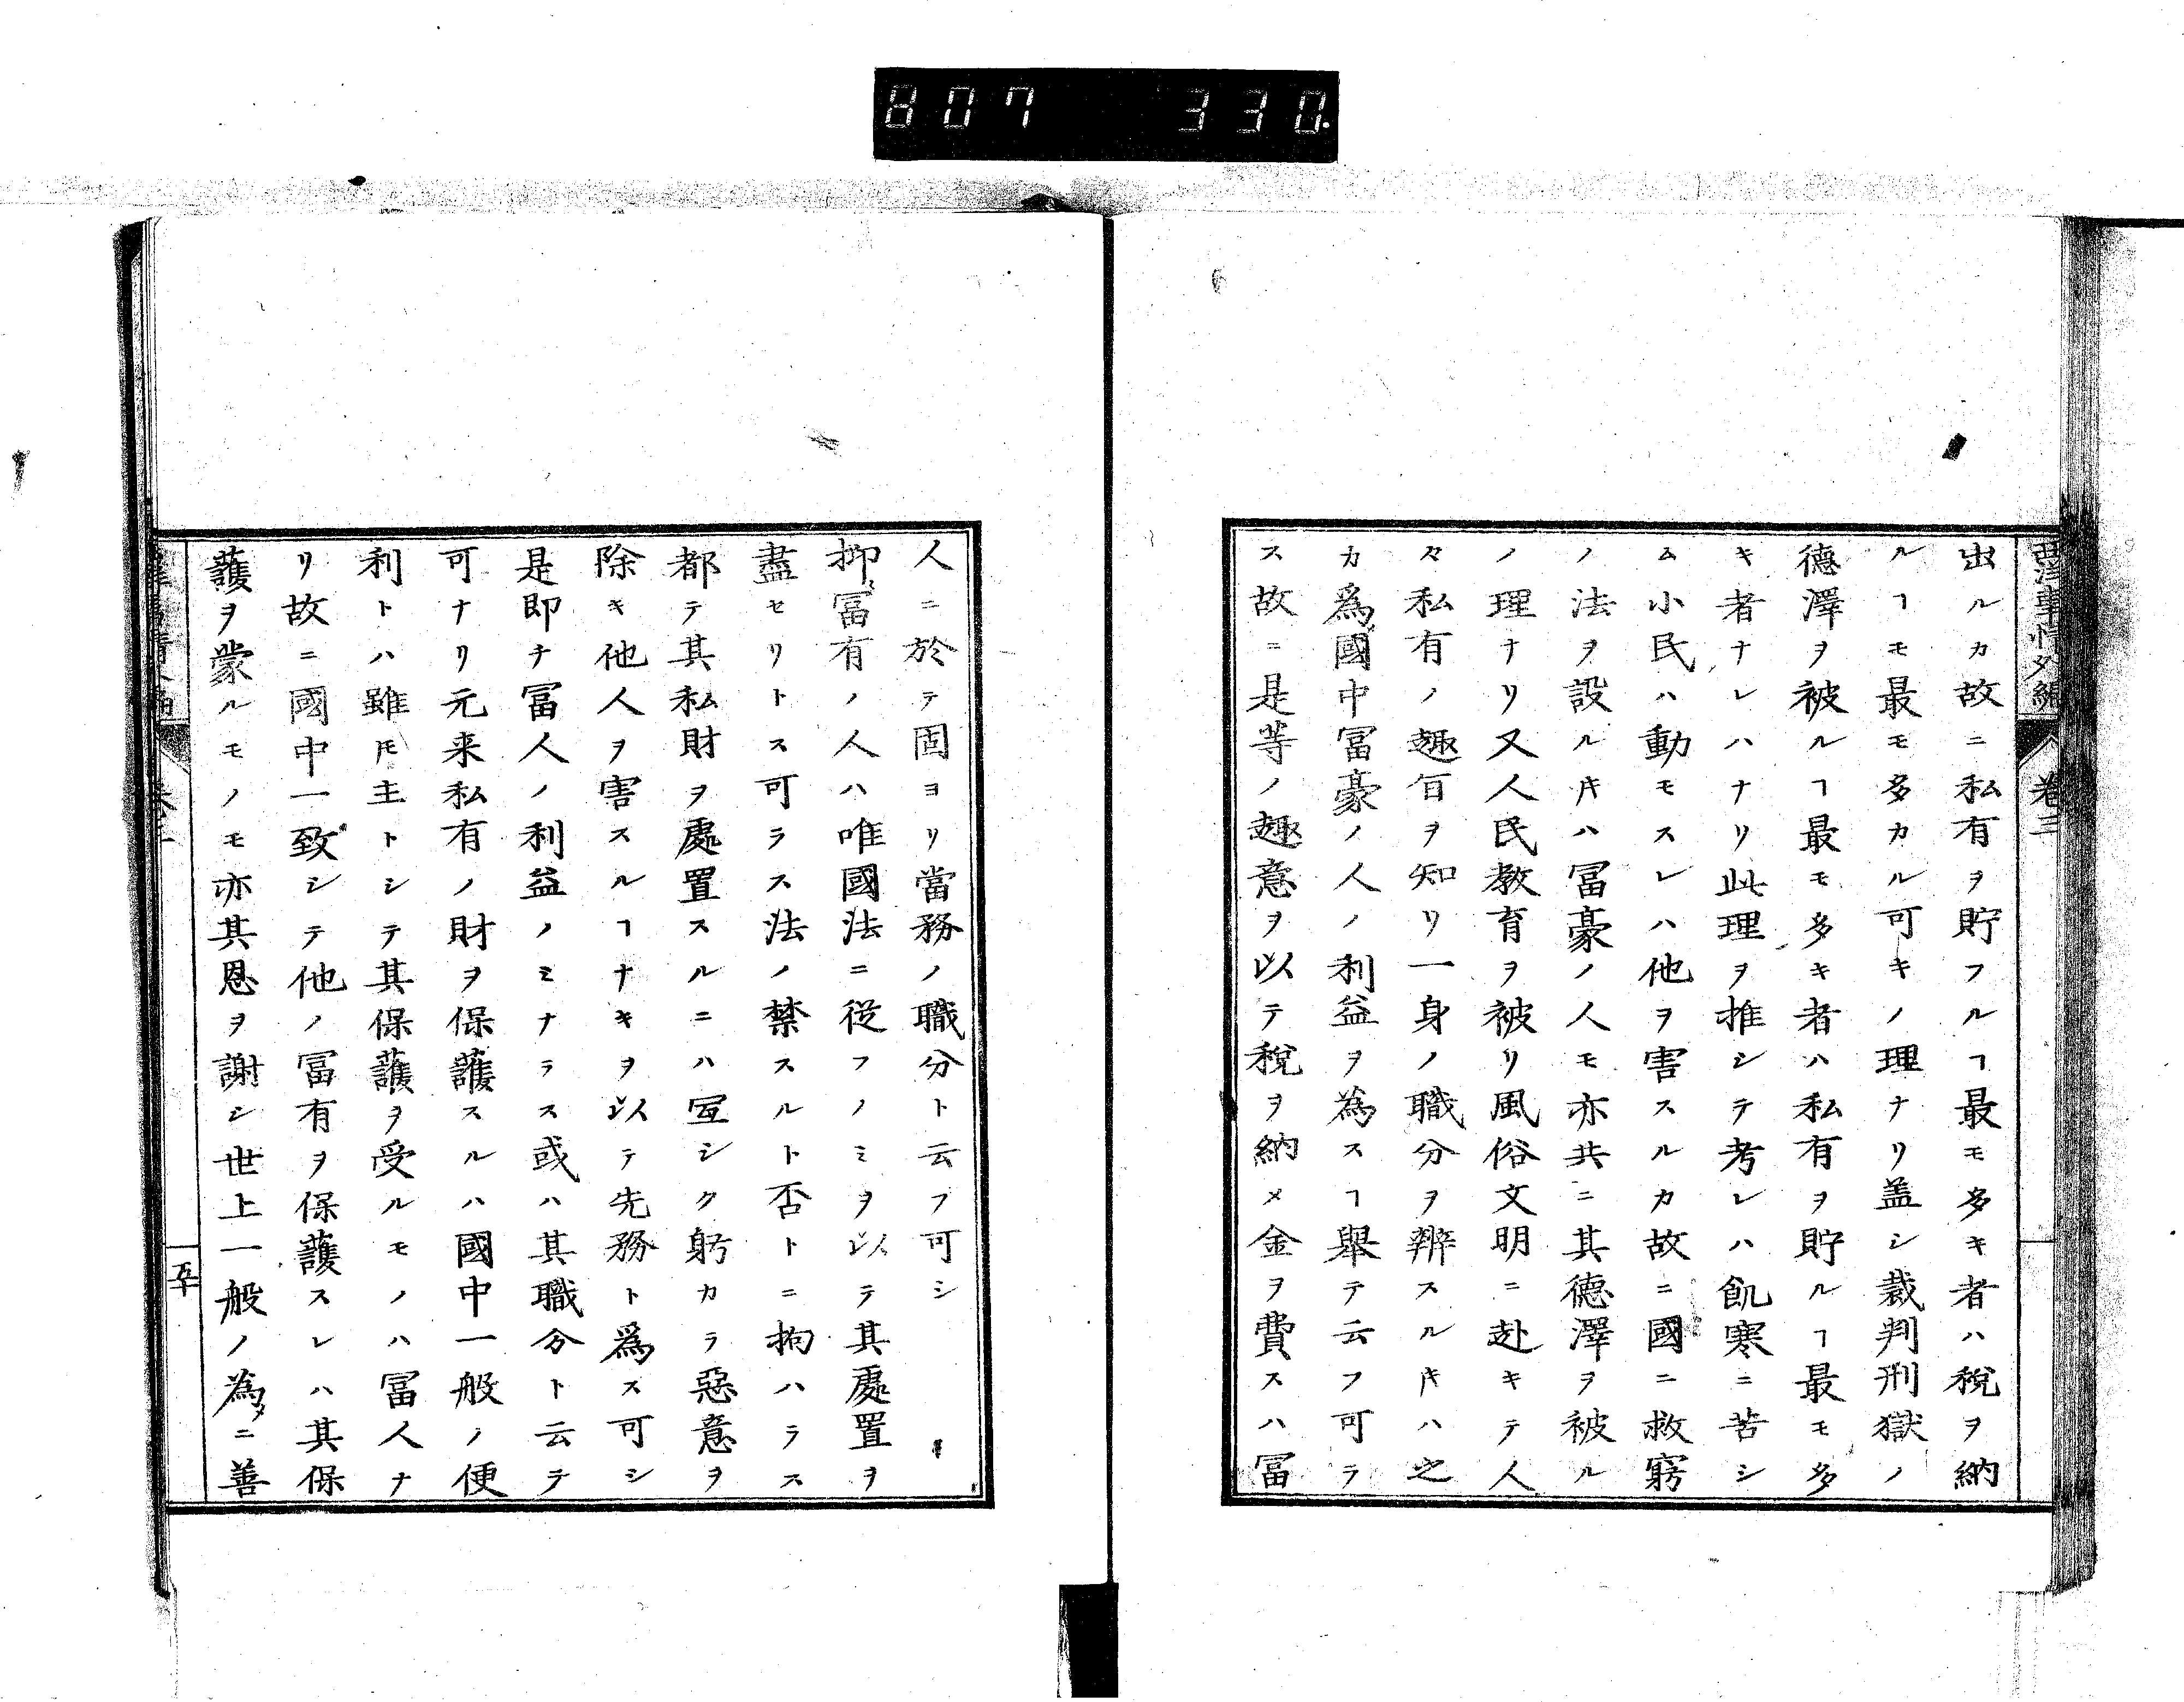 807 330.
西洋事情外編 卷三
出ルカ故ニ私有ヲ貯フルヿ最モ多キ者ハ稅ヲ納
ルヿモ最モ多カル可キノ理ナリ盖シ裁判刑獄ノ
德澤ヲ被ルヿ最モ多キ者ハ私有ヲ貯ルヿ最モ多
キ者ナレハナリ此理ヲ推シテ考レハ飢寒ニ苦シ
ム小民ハ動モスレハ他ヲ害スルカ故ニ國ニ救窮
ノ法ヲ設ルキハ冨豪ノ人モ亦共ニ其德澤ヲ被ル
ノ理ナリ又人民教育ヲ被リ風俗文明ニ赴キテ人
々私有ノ趣旨ヲ知リ一身ノ職分ヲ辨スルキハ之
カ爲國中冨豪ノ人ノ利益ヲ為スヿ擧テ云フ可ラ
ス故ニ是等ノ趣意ヲ以テ稅ヲ納メ金ヲ費スハ冨
人ニ於テ固ヨリ當務ノ職分ト云フ可シ
抑冨有ノ人ハ唯國法ニ從フノミヲ以テ其處置ヲ
盡セリトス可ラス法ノ禁スルト否トニ拘ハラス
都テ其私財ヲ處置スルニハ宜シク躬カラ惡意ヲ
除キ他人ヲ害スルヿナキヲ以テ先務ト爲ス可シ
是即チ冨人ノ利益ノミナラス或ハ其職分ト云テ
可ナリ元来私有ノ財ヲ保護スルハ國中一般ノ便
利トハ雖𪜈主トシテ其保護ヲ受ルモノハ冨人ナ
リ故ニ國中一致シテ他ノ冨有ヲ保護スレハ其保
護ヲ蒙ルモノモ亦其恩ヲ謝シ世上一般ノ為メニ善
五十